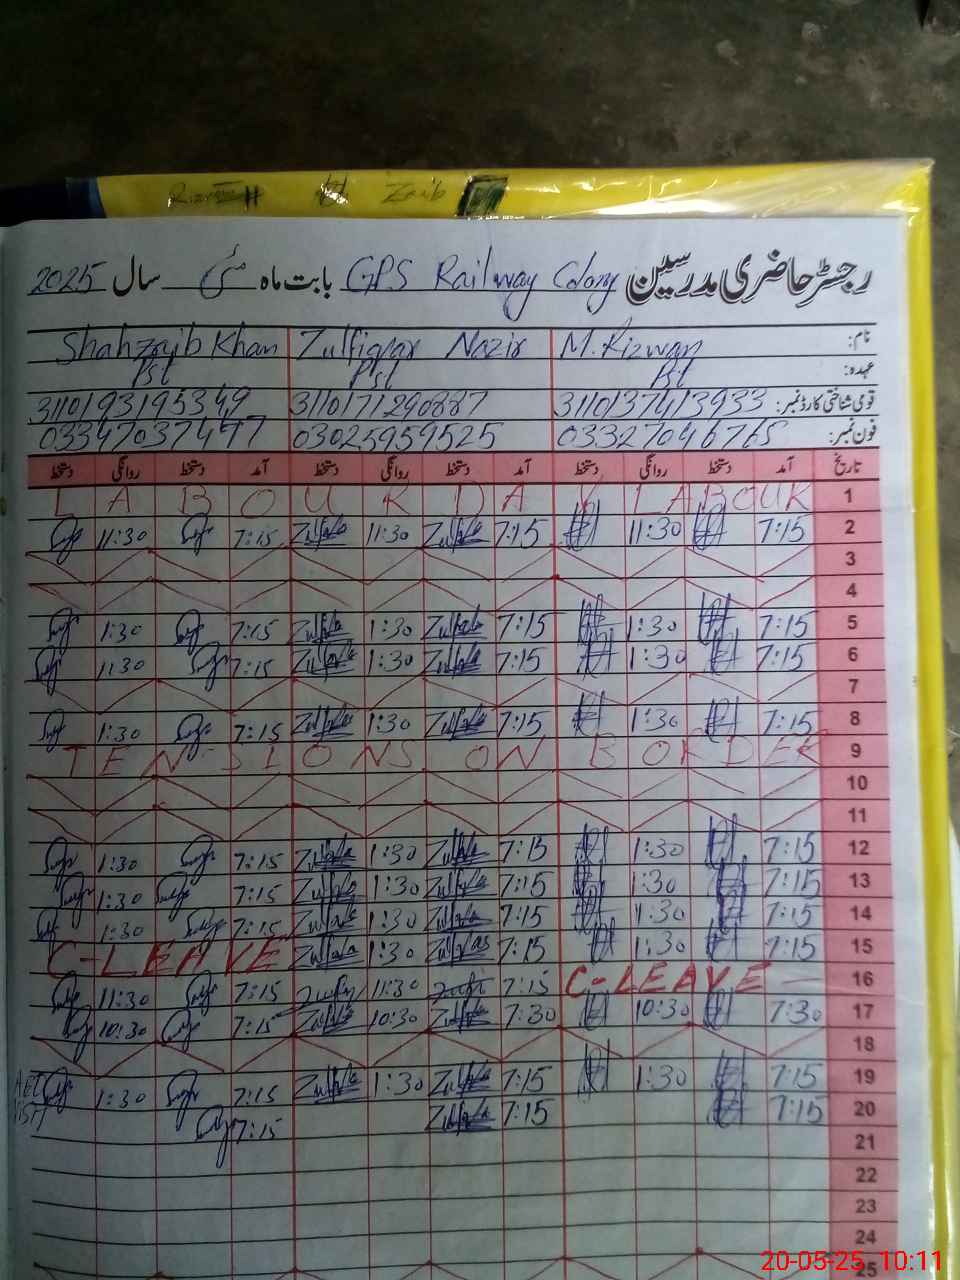 Zaib
رجسٹر حاضری مدرسین GPS Railway Colony بابت ماہ مئی سال 2025
نام: M. Rizwan Zulfiqar Nazir Shahzaib Khan
عہدہ: Pst Pst Pst
قومی شناختی کارڈ نمبر: 3110137413933 3110171290887 3110193195349
فون نمبر: 03327046765 03025959525 03347037477
تاریخ آمد دستخط روانگی دستخط آمد دستخط روانگی دستخط آمد دستخط روانگی دستخط
1 LABOUR DAY LABOUR
2 7:15 11:30 7:15 11:30 7:15 11:30
3
4
5 7:15 1:30 7:15 1:30 7:15 1:30
6 7:15 1:30 7:15 1:30 7:15 11:30
7
8 7:15 1:30 7:15 1:30 7:15 1:30
9 TENSIONS ON BORDER
10
11
12 7:15 1:30 7:15 1:30 7:15 1:30
13 7:15 1:30 7:15 1:30 7:15 1:30
14 7:15 1:30 7:15 1:30 7:15 1:30
15 7:15 1:30 7:15 1:30 C-LEAVE
16 C-LEAVE 7:15 11:30 7:15 11:30
17 7:30 10:30 7:30 10:30 7:15 10:30
18
19 7:15 1:30 7:15 1:30 7:15 1:30
20 7:15 7:15 7:15
21
22
23
24
25
20-05-25 10:11